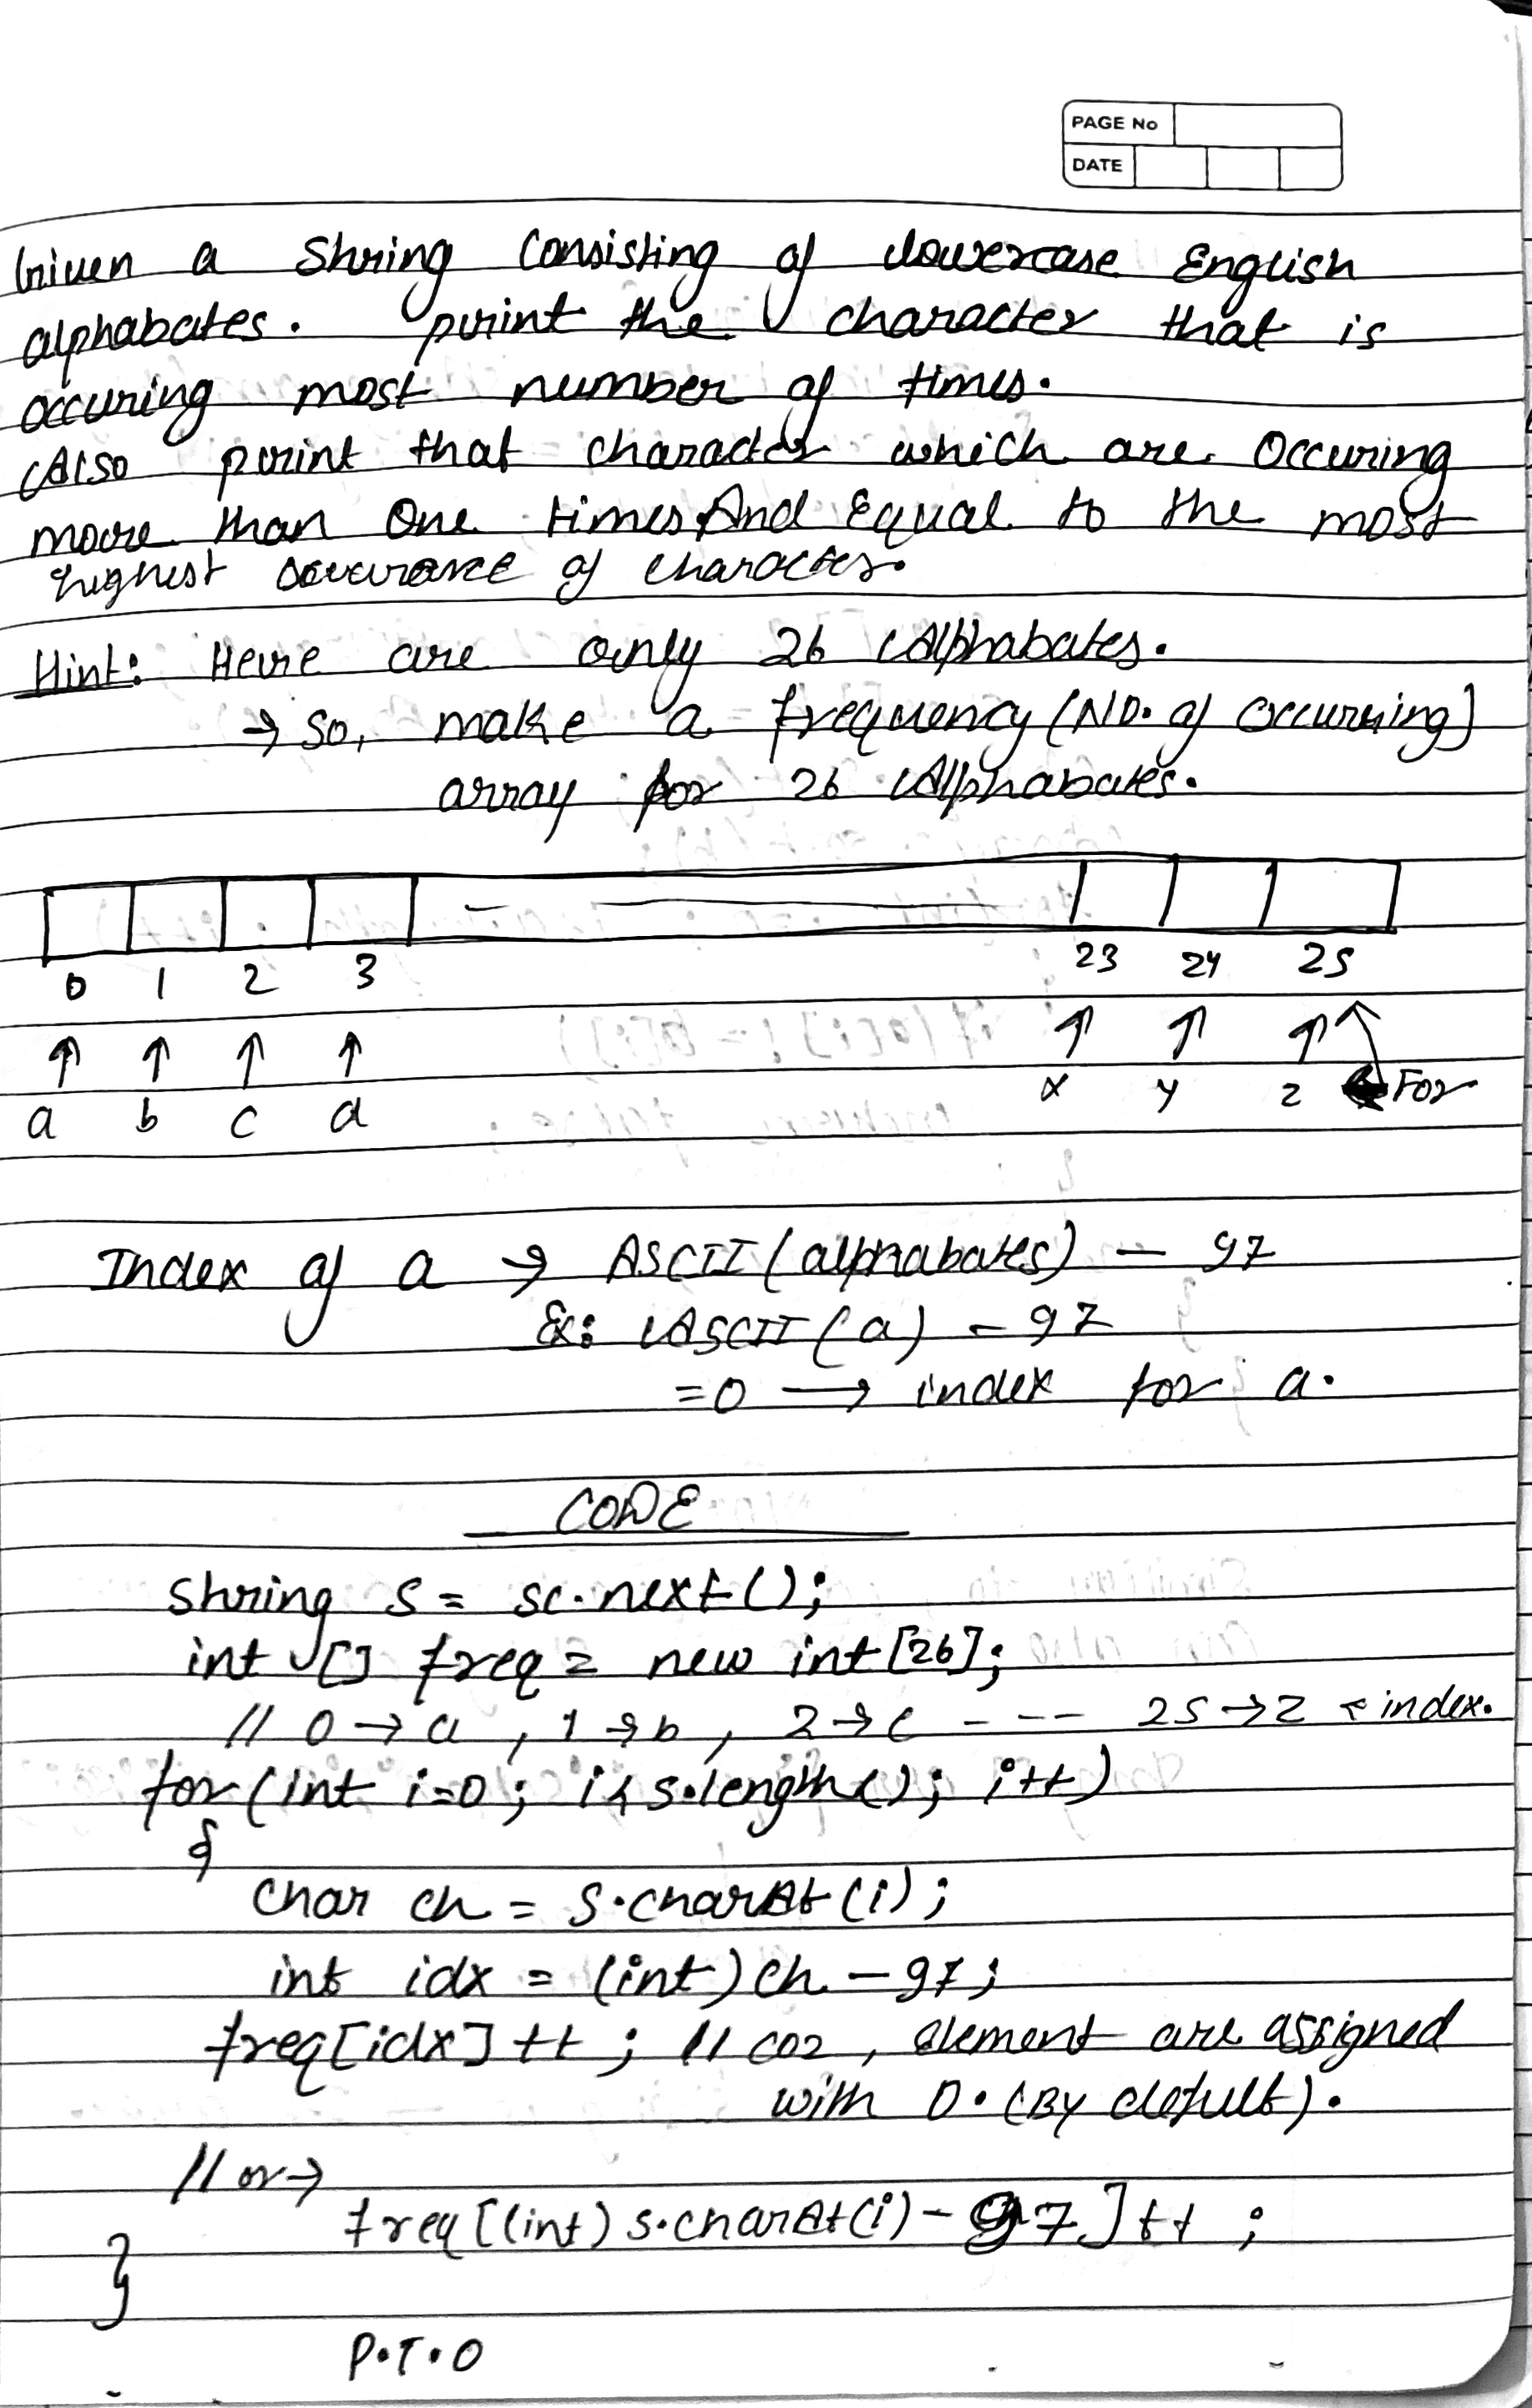 PAGE No
DATE
Given a String Consisting of lowercase English
alphabates. print the character that is
occuring most number of times.
Also print that character which are Occuring
more than One times And Equal to the most
highest occurance of character.
Hint: Here are only 26 Alphabates.
→ So, make a frequency (NO. of occurring)
array for 26 Alphabates.
0 1 2 3 23 24 25
a b c d x y z For
Index of a → ASCII (alphabates) - 97
Ex: ASCII (a) - 97
=0 → index for a.
CODE
String s = sc.next();
int [] freq = new int[26];
// 0→a, 1→b, 2→c - -- 25→z ← index.
for (int i=0; i<s.length(); i++)
{
char ch = s.charAt(i);
int idx = (int)ch - 97;
freq[idx]++; // coz, element are assigned
with 0. (By defult).
// or→
freq[(int) s.charAt(i) - 97]++;
}
P.T.O